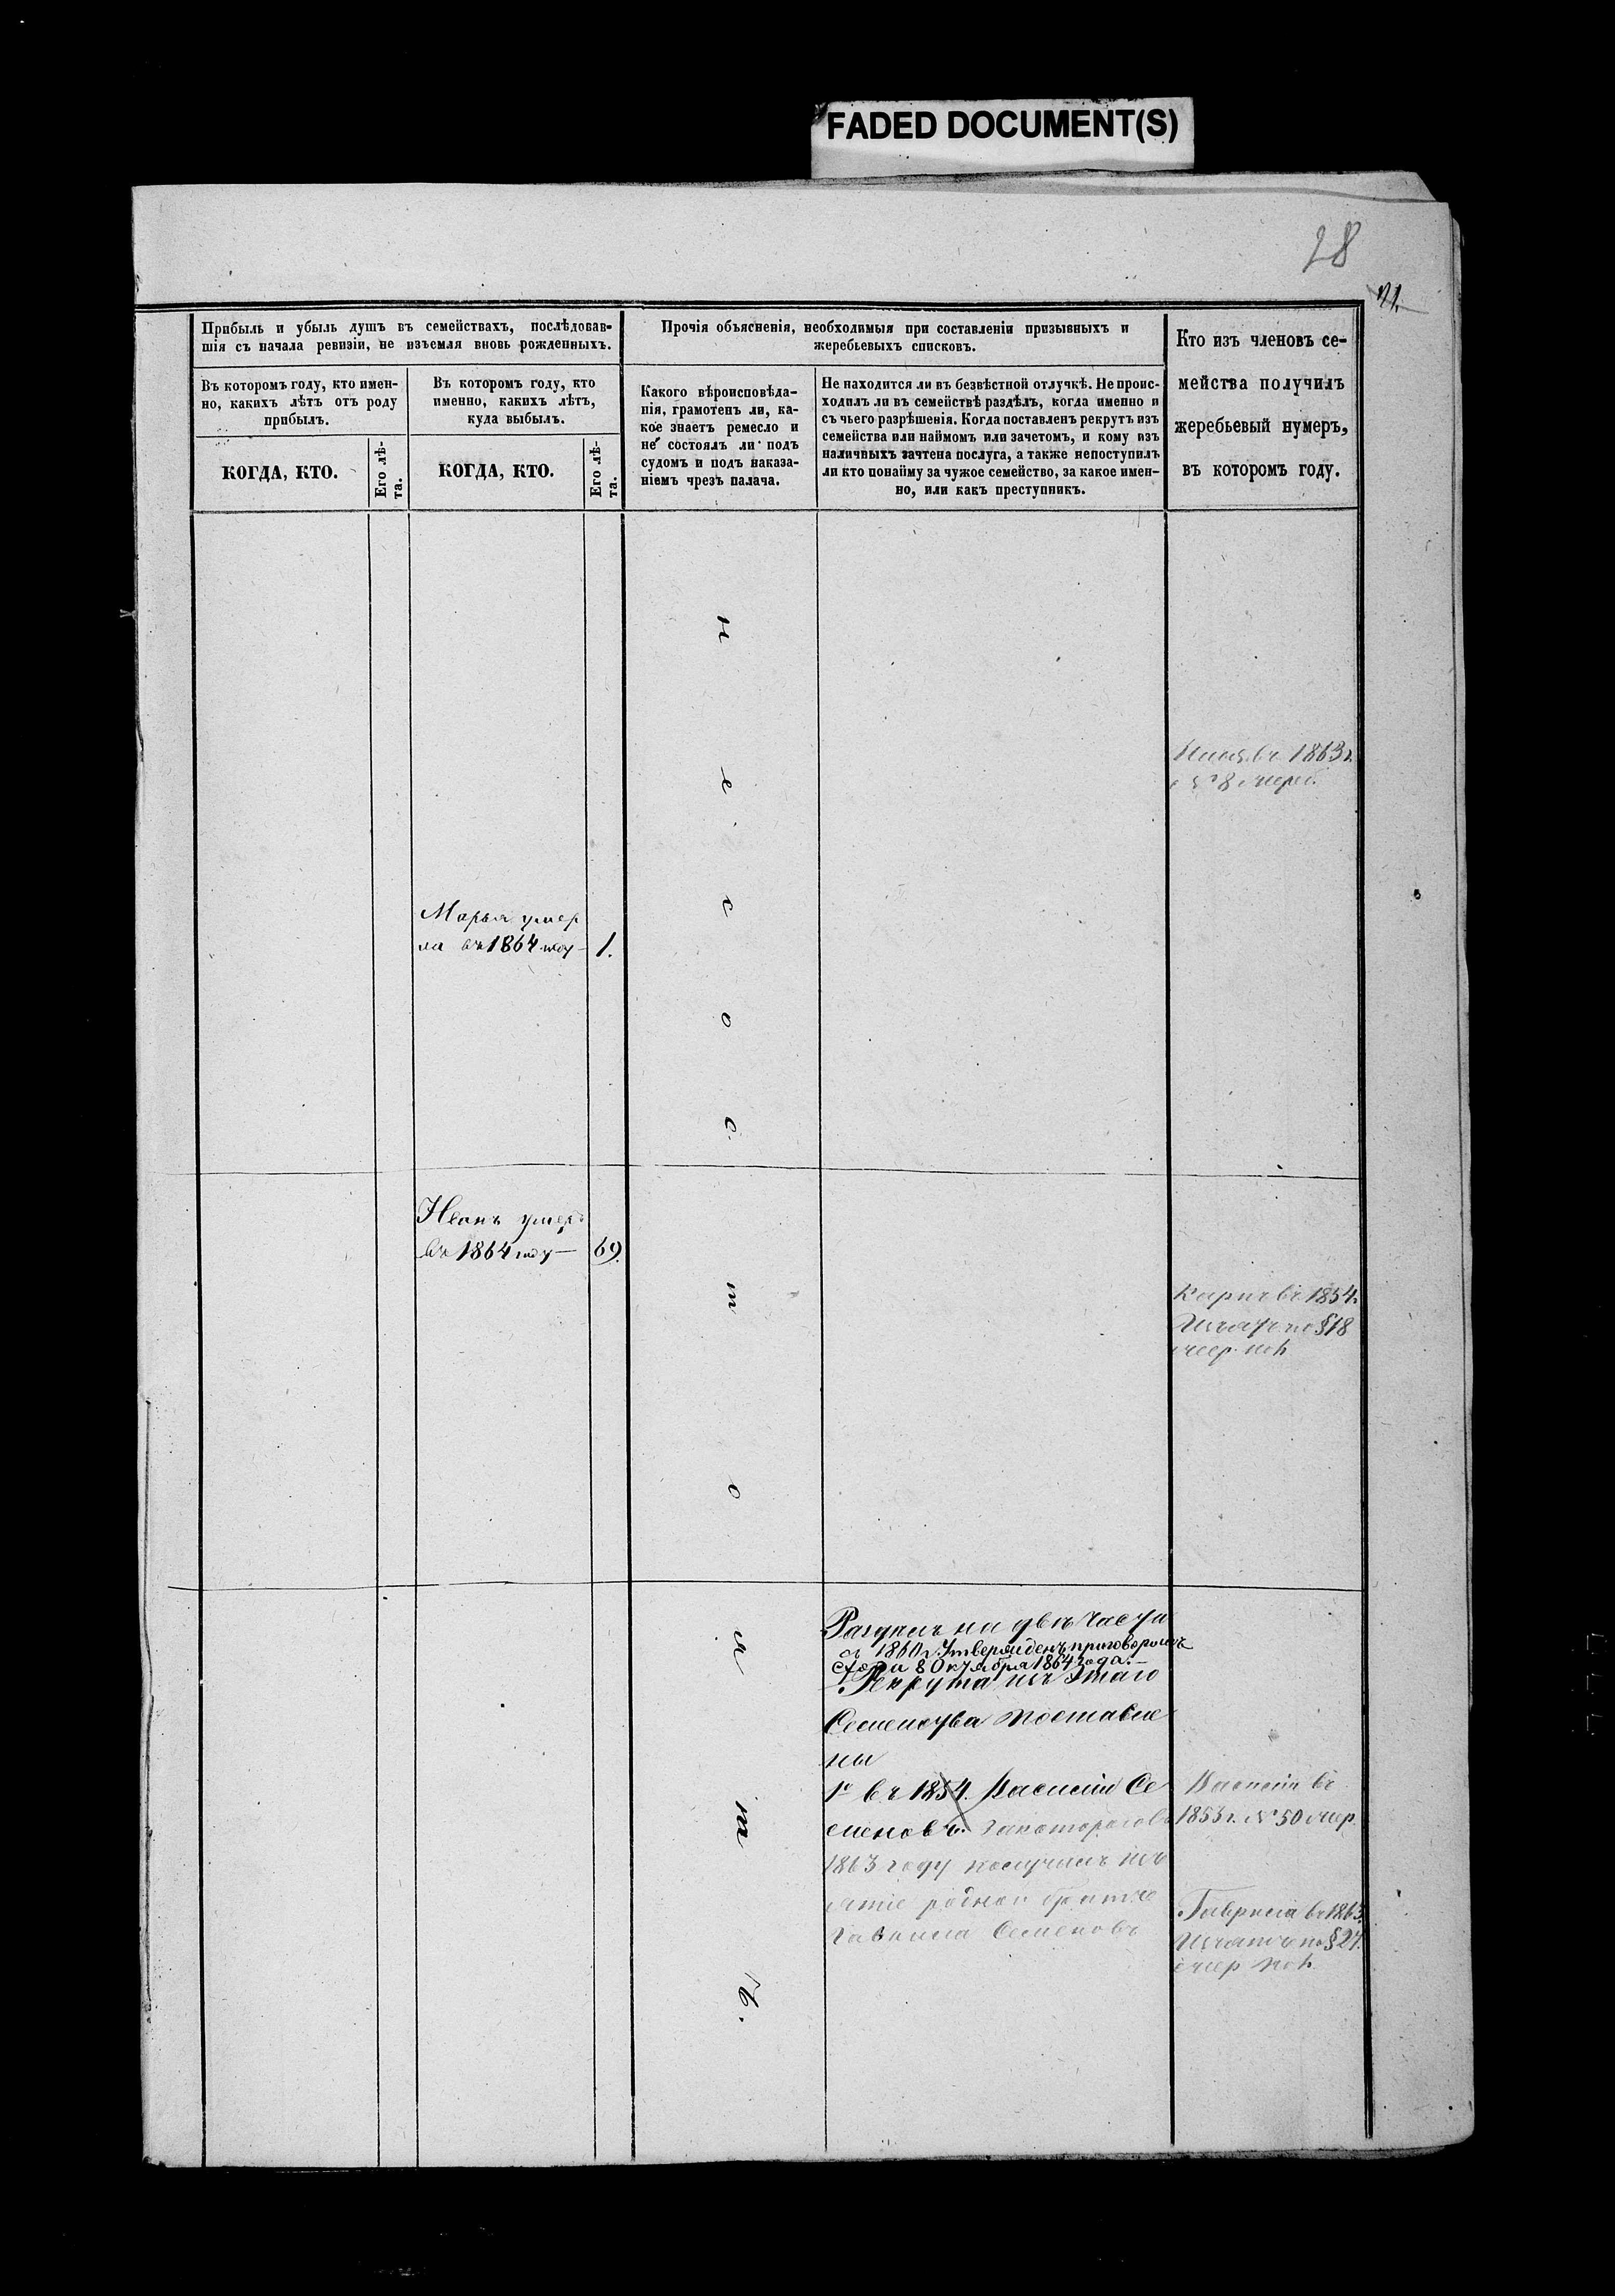 FADED DOCUMENT(S)
28
21.
Прибыль и убыль душъ въ семействахъ, послѣдовав-
шія съ начала ревизіи, не изъемля вновь рожденныхъ.
Прочія объясненія, необходимыя при составленіи призывныхъ и
жеребьевыхъ списковъ.
Кто изъ членовъ се-
мейства получилъ
жеребьевый нумеръ,
въ которомъ году.
Въ которомъ году, кто имен-
но, какихъ лѣтъ отъ роду
прибылъ.
Въ которомъ году, кто
именно, какихъ лѣтъ,
куда выбылъ.
Какого вѣроисповѣда-
нія, грамотенъ ли, ка-
кое знаетъ ремесло и
не состоялъ ли подъ
судомъ и подъ наказа-
ніемъ чрезъ палача.
Не находится ли въ безвѣстной отлучкѣ. Не проис-
ходилъ ли въ семействѣ раздѣлъ, когда именно и
съ чьего разрѣшенія. Когда поставленъ рекрутъ изъ
семейства или наймомъ или зачетомъ, и кому изъ
наличныхъ зачтена послуга, а также непоступилъ
ли кто понайму за чужое семейство, за какое имен-
но, или какъ преступникъ.
КОГДА, КТО.
Его лѣ-
та.
КОГДА, КТО.
Его лѣ-
та.
не состоятъ.
въ 1863 г.
№ 8
Марья умер
ла въ 1864 году 1.
Иванъ умеръ
въ 1864 году 69.
Карпъ въ 1854.
§ 18
Раздѣлъ на двѣ части
1860 г. Утвержденъ приговоромъ
схода 8 Октября 1864 года.
Рекрута изъ этаго
Семейства поставле
ны
1е въ 1854. Василій Се
меновъ.
1863 году получилъ
родной братъ
Гаврила Семеновъ
Василій въ
1853 г. № 50 очер.
Гаврила въ 1863.
по § 27.
очер